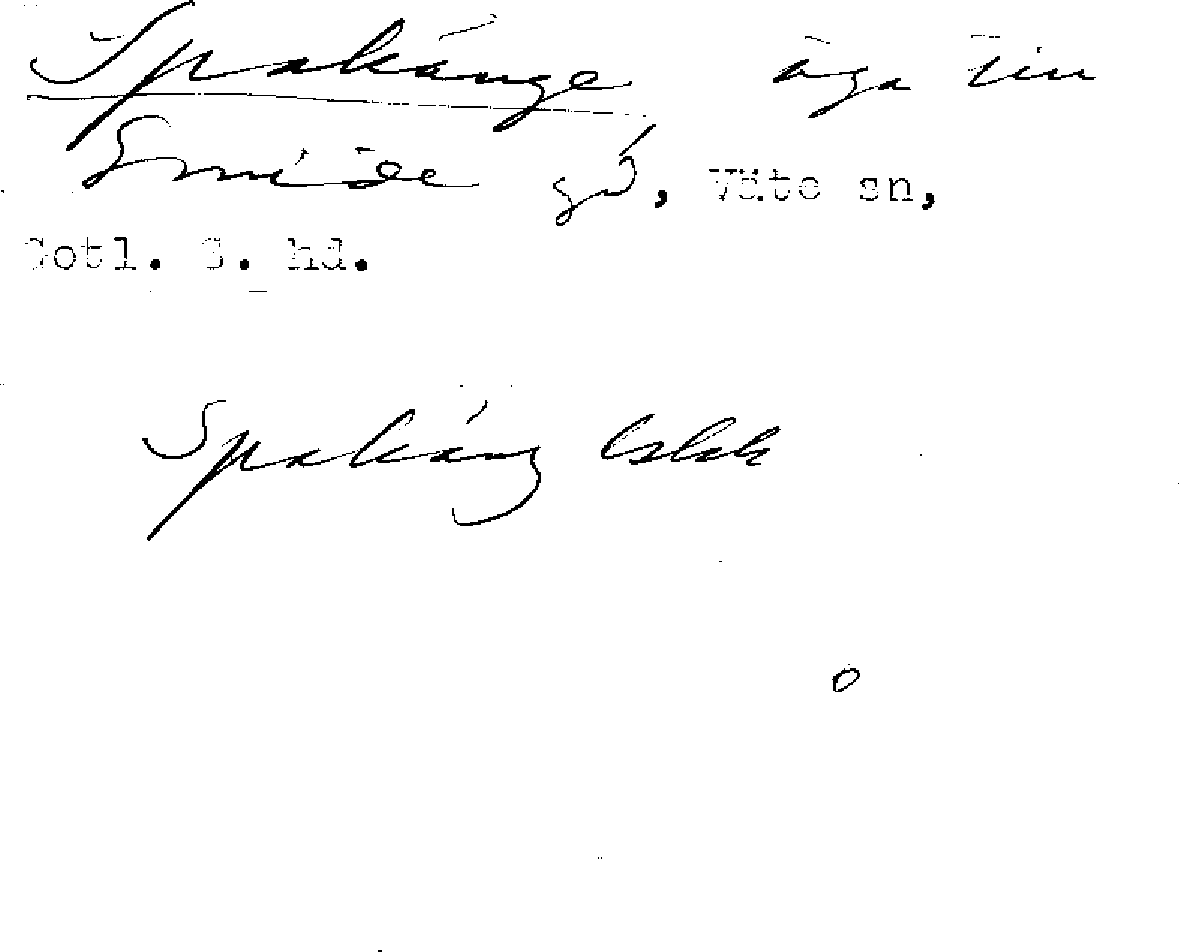 Spakänge äga till
Smide gd, Väte sn,
Gotl. S. hd.
Spakäng